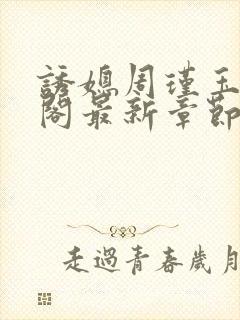 誘媳周瑾玉
閣最新章節
走過青春歲月